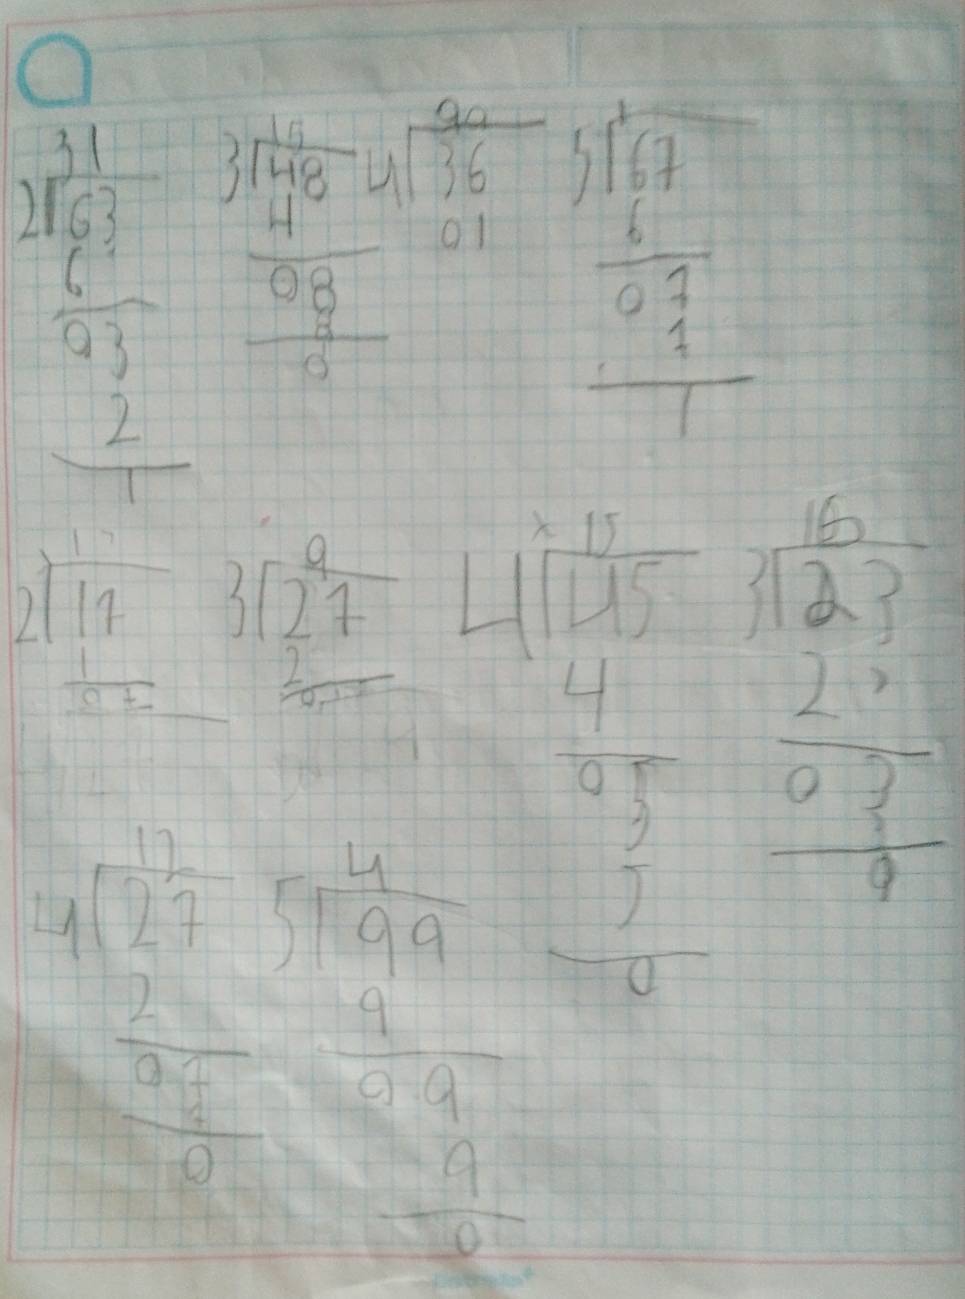 31
2 63
6
03
2
1
3 48
4
08
8
0
99
4 36
01
5 67
6
07
7
1
2 17
1
07
9
3 27
2
07
15
4 45
4
05
5
0
3 23
2
03
3
0
12
4 27
2
07
0
4
5 99
9
09
9
0